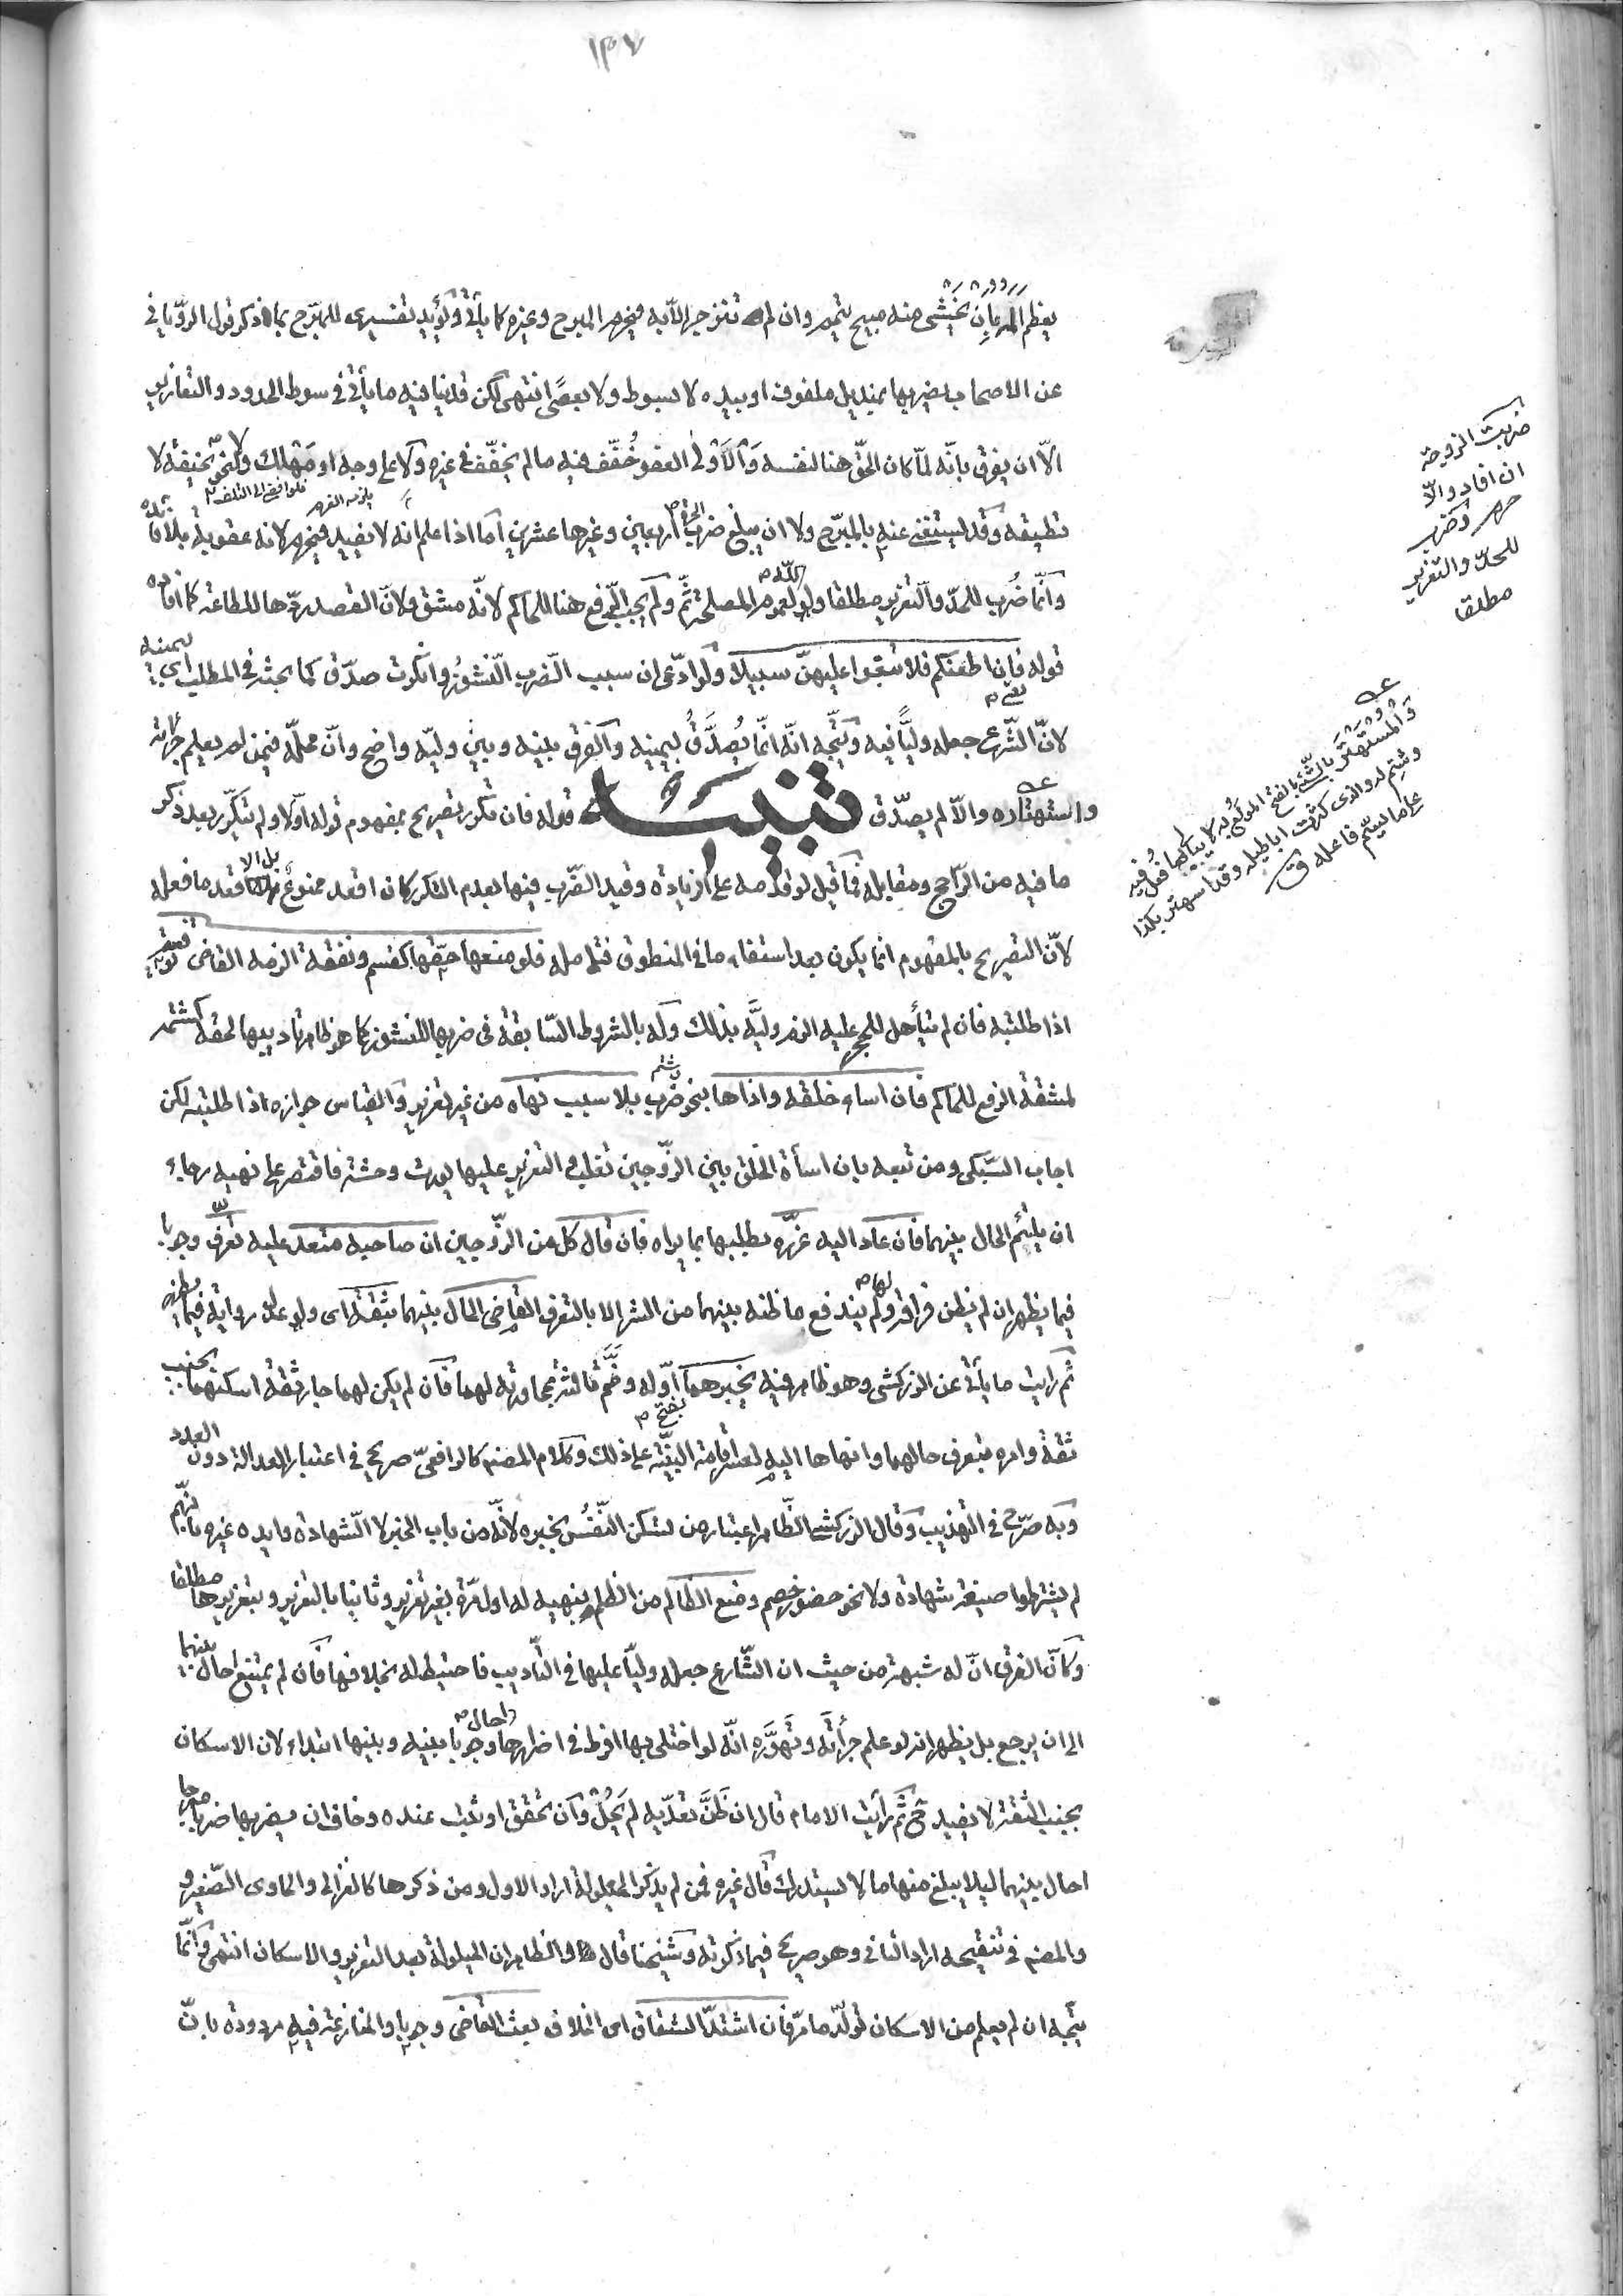 ١٣٧
يعظم المه بان يخشى منه مبيح تيمم وان لم تنزجر الا به فيحرم المبرح وغيره كما يأتي ويؤيد تفسيري للمبرح بما ذكر قول الروياني
عن الاصحاب يضربها بمنديل ملفوف او بيده لا بسوط ولا بعصًى انتهى لكن قد ينافيه ما يأتي في سوط الحدود والتعازير
الّا ان يفرق بانّه لمّا كان الحقّ هنا لنفسه والاولى العفو خُفّف فيه ما لم يخفّف في غيره ولا على وجه او مهلك ولا نحو
تطبيقه وقد يستغنى عنه بالمبرّح ولا ان يبلغ ضرب الحرة اربعين وغيرها عشرين أما اذا علم انه لا يفيد فيحرم لانه عقوبة بلا فائدة
وانّما ضُرب للحدّ والتعزير مطلقا ولو لله لعموم المصلحة ثمّ ولم يجب الرفع هنا للحاكم لانّه مشق ولانّ القصد ردّها للطاعة كما افاده
قوله فإن اطعنكم فلا تبغوا عليهنّ سبيلا ولو ادّعى ان سبب الضرب النشوز وانكرت صدّق كما بحثه في المطلب اى بيمينه
لانّ الشرع جعله وليًّا فيه ويتّجه انّه انّما يُصدَّق بيمينه والفرق بينه وبين وليّه واضح وانّ محلّه فيمن لم يعلم جراءته
واستهتاره والّا لم يصدّق تنبيه قوله فان تكرر تصريح بمفهوم قوله اوّلا ولم يتكرّر بعد ذكر
ما فيه من الراجح ومقابله فما قيل لو قدمه على الزيادة وقيد الضرب فيها بعدم التكرر كان اقعد ممنوعٌ بل الاقعد ما فعله
لانّ التصريح بالمفهوم انّما يكون بعد استيفاء ما في المنطوق فتأمله فلو منعها حقّها كقسم ونفقة الزمه القاضى توفيته
اذا طلبته فان لم يتأهل للحجر عليه الزم وليَّه بذلك وله بالشروط السّابقة في ضربها للنشوز كما هو ظاهر تأديبها لحقه كشتمه
لمشقة الرفع للحاكم فان اساء خلقه واذاها بنحو ضرب بلا سبب نهاه من غير تعزير والقياس جوازه اذا طلبته لكن
اجاب السّبكى ومن تبعه بان اسأة الخلق بين الزّوجين تغلب والتعزير عليها يورث وحشة فاقتصر على نهيه رجاء
ان يلتئم الحال بينهما فان عاد اليه عزّره بطلبها بما يراه فان قال كل من الزّوجين ان صاحبه متعد عليه تعرّف وجوبا
فيما يظهر ان لم يظن فراقه لها ولم يندفع ما ظنه بينهما من الشر الا بالتعرف القاضى الحال بينهما بثقة اى ولو عدل رواية فيما يظهر
ثم رايت ما يأتي عن الزركشى وهو ظاهر فيه يخبرهما بفتح اوّله وضمّ ثالثه بمجاورته لهما فان لم يكن لهما جار ثقة اسكنهما بجنب
ثقة وامره بتعرف حالهما وانهاها اليه لعسر اقامة البيّنة على ذلك وكلام المصنم كالرافعىّ صريح في اعتبار العدالة دون العدد
وبه صرّح في التهذيب وقال الزركشى الظّاهر اعتبار من تسكن النّفس بخبره لانّه من باب الخبر لا الشهادة وايده غيره بانهم
لم يشترطوا صيغة شهادة ولا نحو حضور خصم ومنع الظالم من الظلم بنهيه له اول مرّة بغير تعزير وثانيا بالتعزير وبتعزيرها مطلقا
وكأنّ الفرق انّ له شبهة من حيث ان الشّارع جعله وليّا عليها في التأديب فاحتيط له بخلافها فان لم يمتنع احال بينهما
الى ان يرجع بل يظهر انه لو علم جرأته وتهوّره انّه لو اختلى بها افرط في اضرارها احال وجوبا بينه وبينها ابتداء لان الاسكان
بجنب الثقة لا يفيد ح ثم رأيت الامام قال ان ظنّ تعدّيه لم يَحُل وان تحقق او ثبت عنده وخاف ان يضربها ضربا مبرحا
احال بينهما ليلا يبلغ منها ما لا يستدرك قال غيره فمن لم يذكر الحيلولة اراد الاول ومن ذكرها كالغزالى والحاوى الصّغير و
والمصنم في تنقيحه اراد الثانى وهو صريح فيما ذكرته وشيخنا قال والظاهر ان الحيلولة بعد التعزير والاسكان انتهى وانّما
يتّجه ان لم يعلم من الاسكان تولّد ما مرّ فان اشتدّ الشقاق اى الخلاف بعث القاضى وجوبا والمنازعة فيه مردودة بانّ
ضربت الزوجة
ان افاد والّا
حرم وضرب
للحدّ والتعزير
مطلقا
والمستهتر بالشّئ بالفتح المولع به لا يبالى بما فُعل فيه
وشتم له والذى كثرت اباطيله وقد استهتر بكذا
على ما لم يسمّ فاعله ق